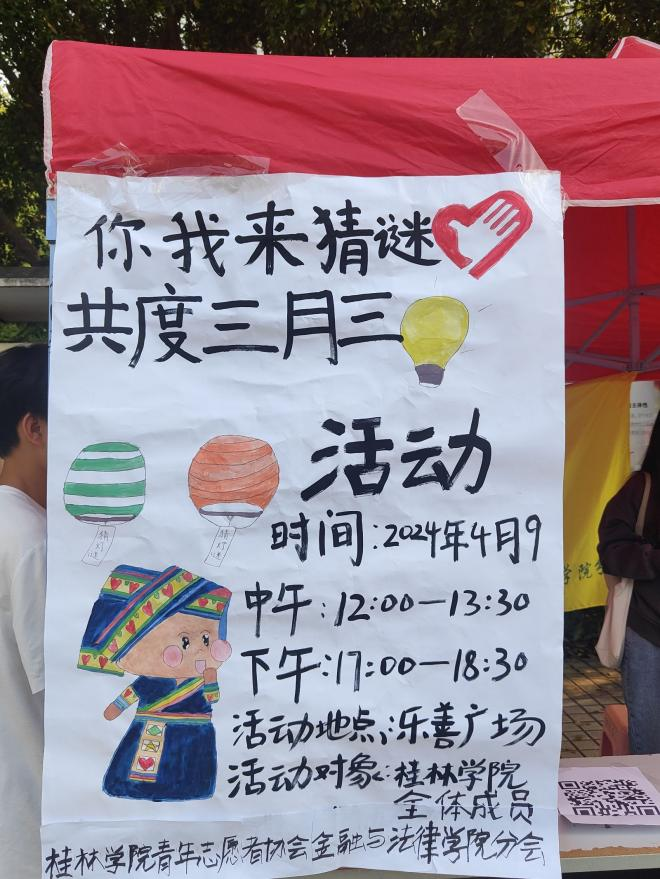 你我来猜谜
共度三月三
活动
猜灯谜
猜灯谜
时间:2024年4月9
中午:12:00—13:30
下午:17:00—18:30
活动地点:乐善广场
活动对象:桂林学院
全体成员
桂林学院青年志愿者协会金融与法律学院分会
学院